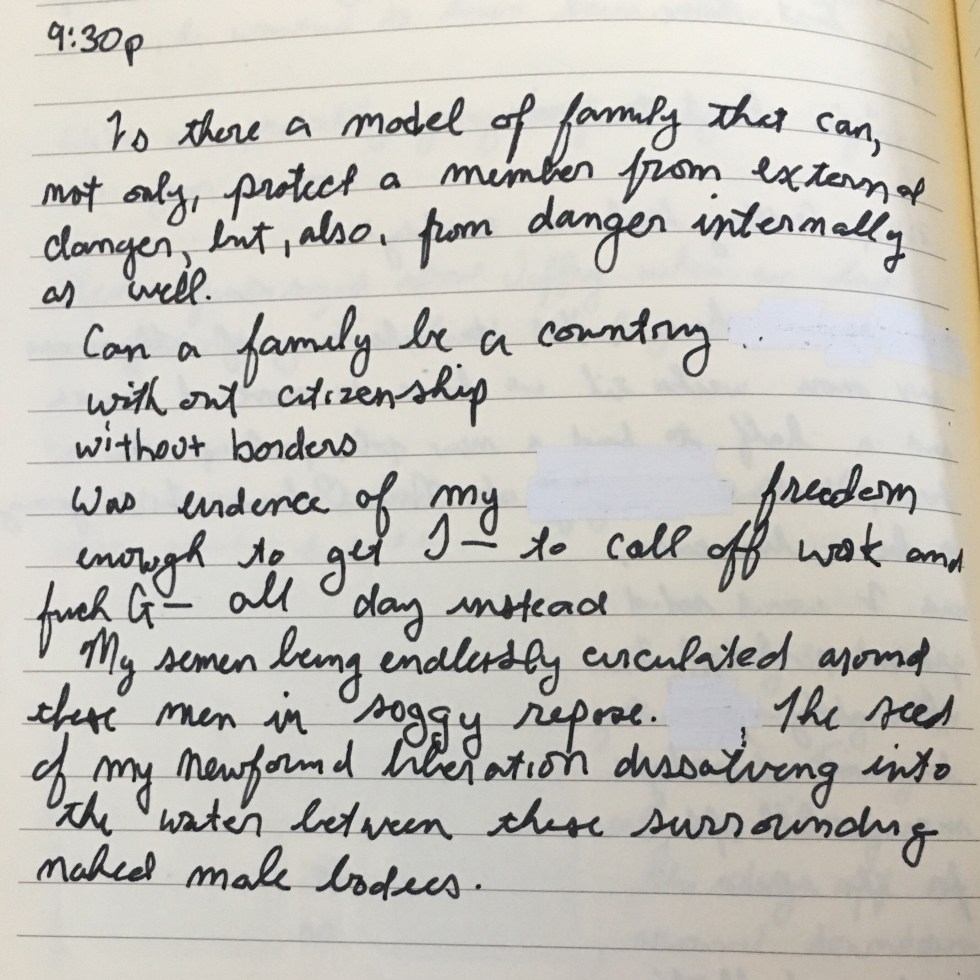 9:30p
Is there a model of family that can,
not only, protect a member from external
danger, but, also, from danger internally
as well.
Can a family be a country ..
with out citizenship
without borders
Was evidence of my freedom
enough to get J— to call off work and
fuck G— all day instead
My semen being endlessly circulated around
these men in soggy repose. The seed
of my newfound liberation dissolving into
the water between these surrounding
naked male bodies.